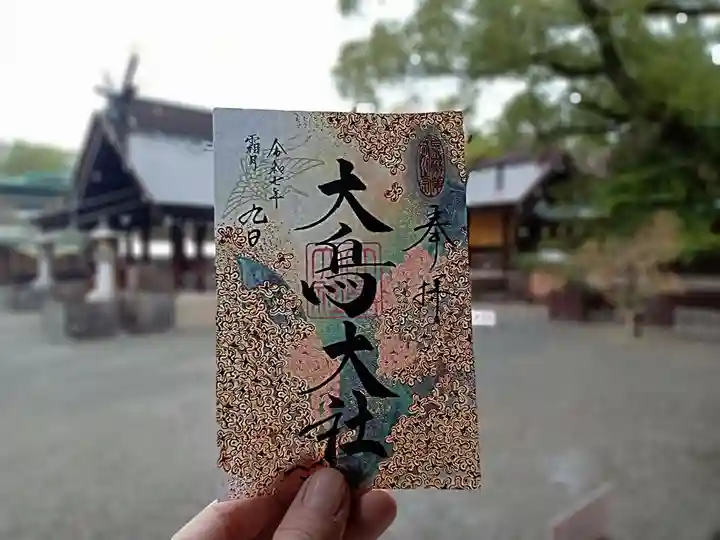 奉拝
大鳥大社
令和七年
霜月九日